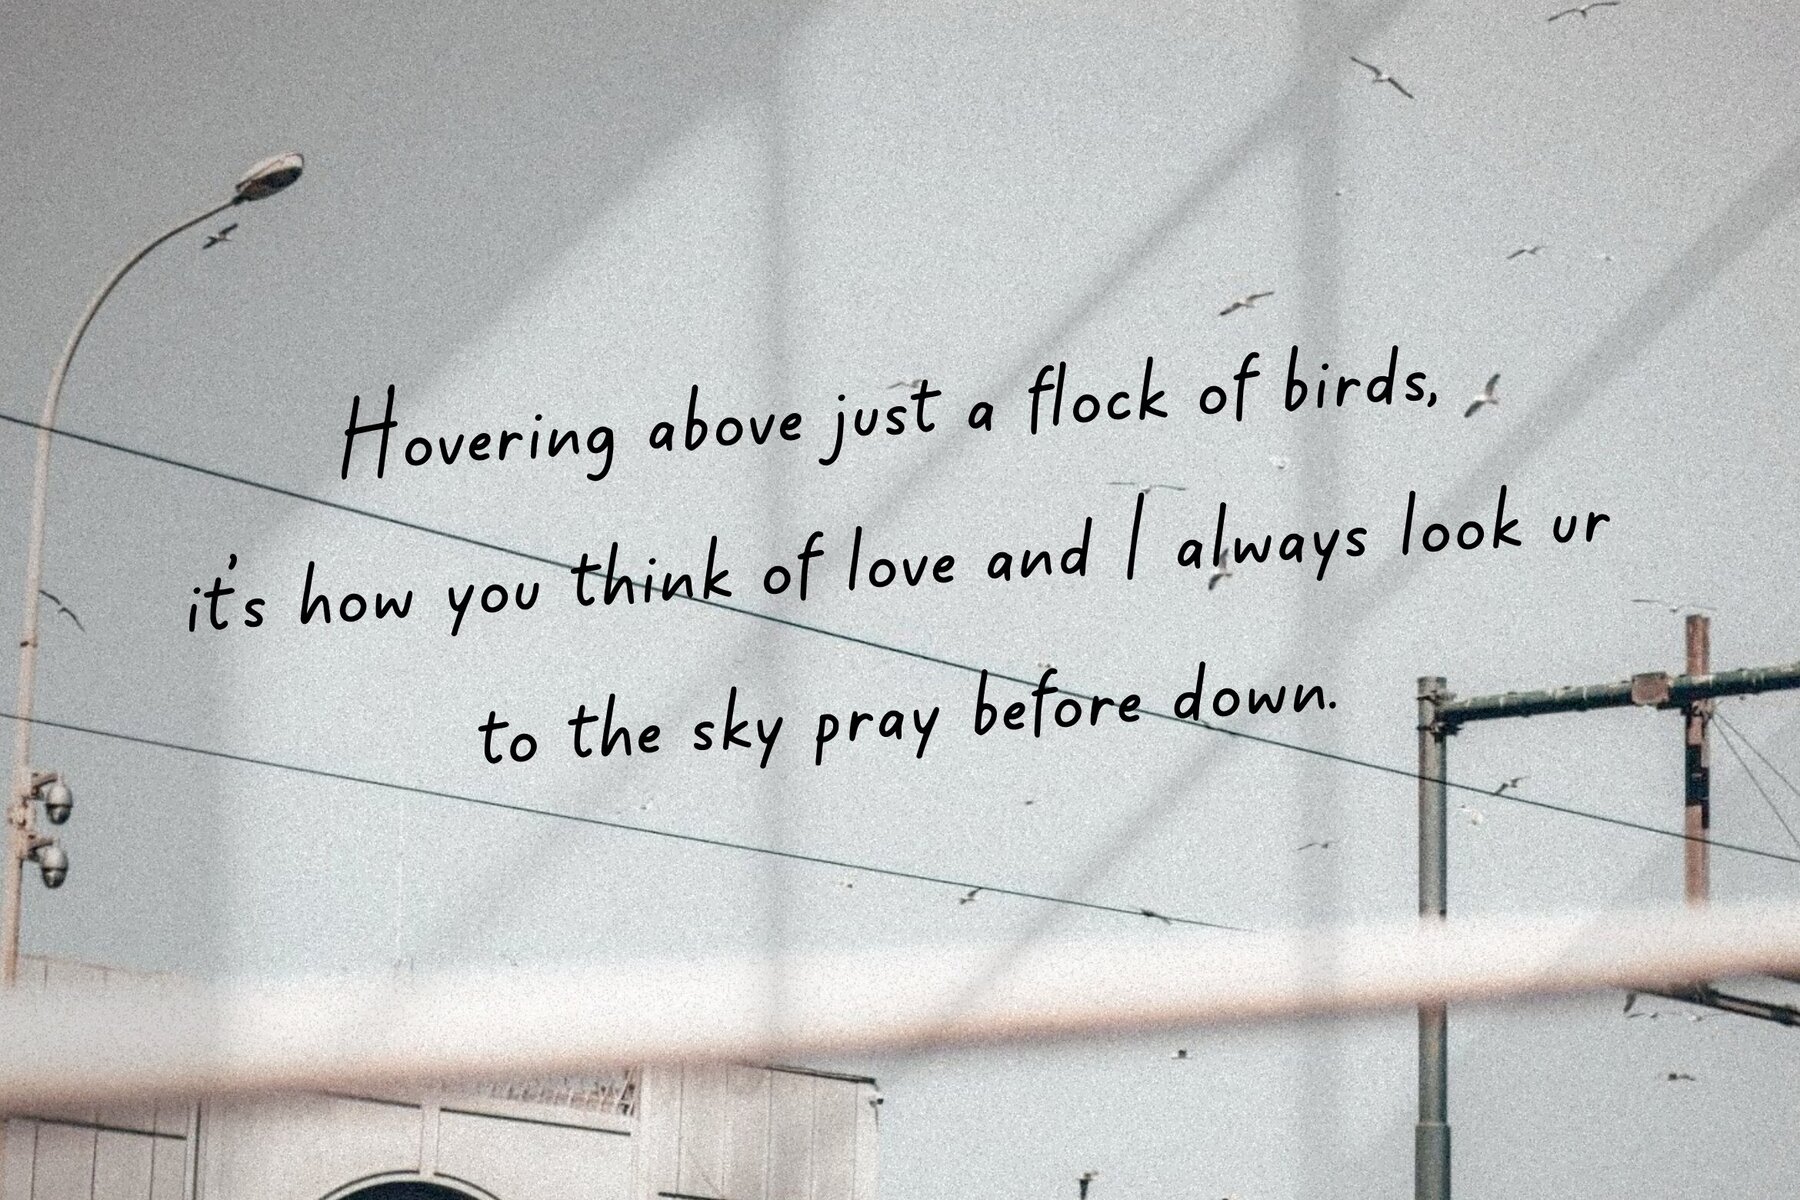 Hovering above just a flock of birds,
it's how you think of love and I always look ur
to the sky pray before down.